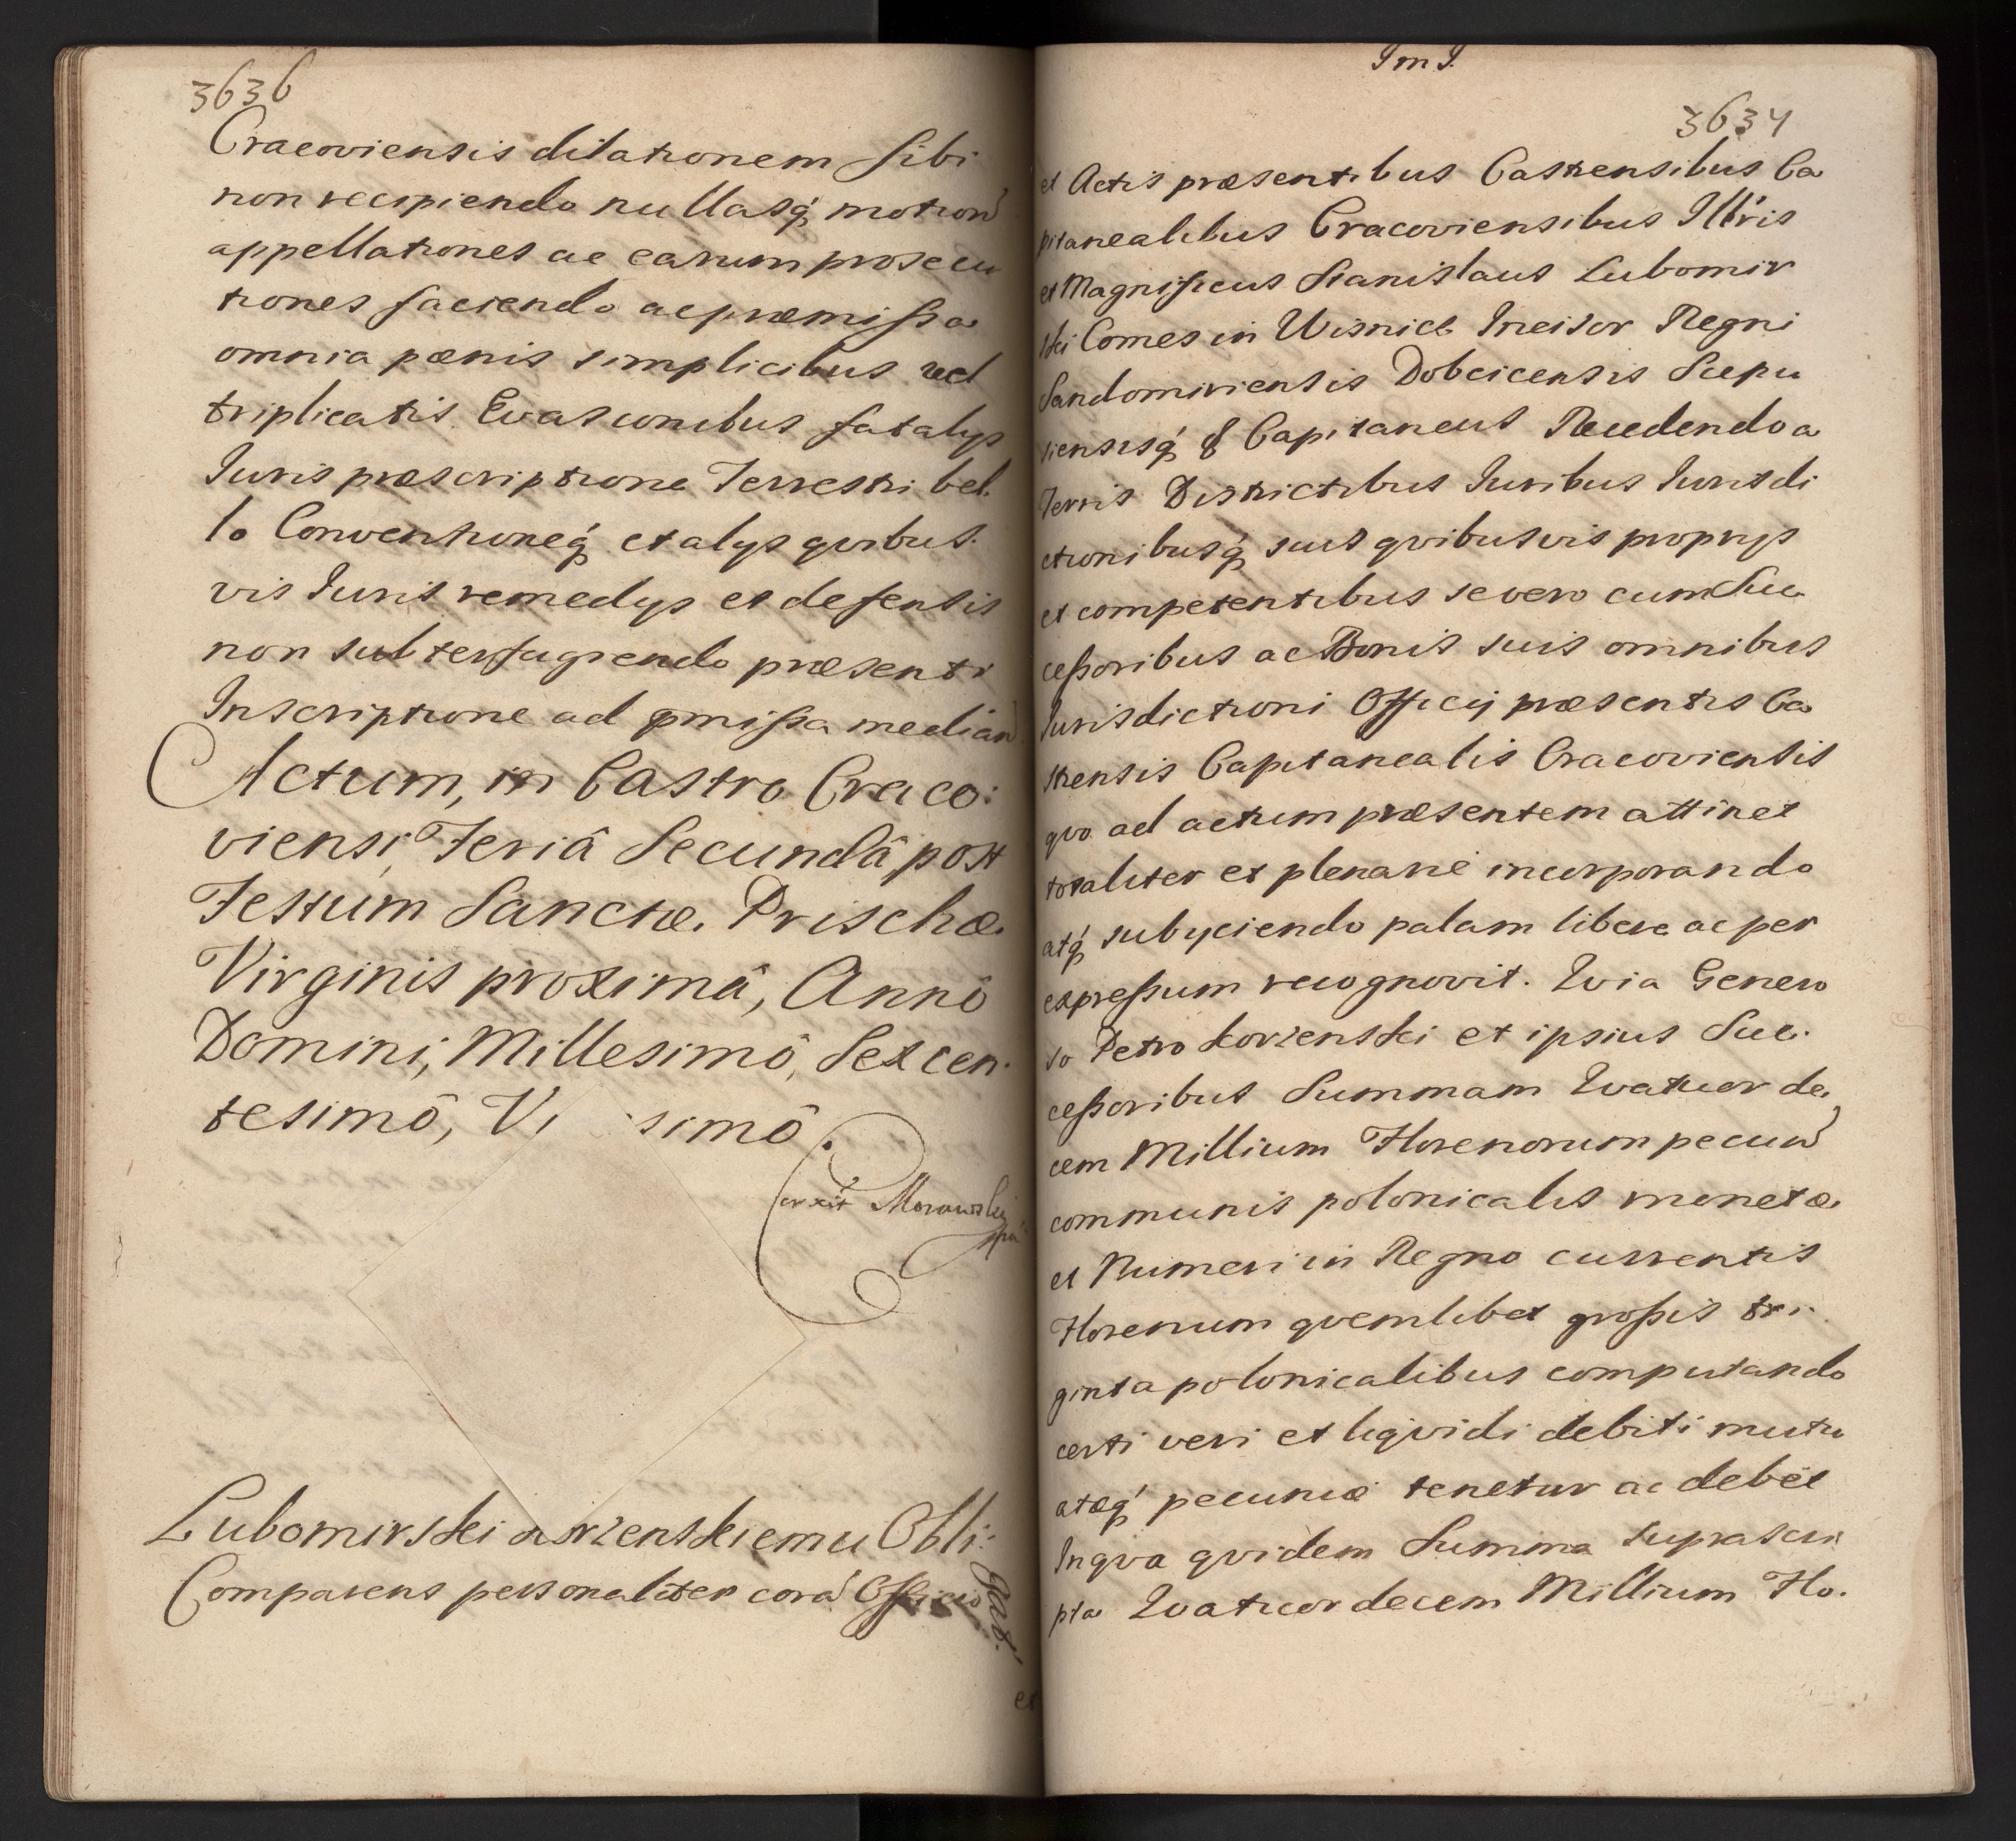 3636
Cracoviensis dilationem sibi
non recipiendo nullasq́ motion
appellationes ac earum prosecu
tiones faciendo ac præmissa
omnia pænis simplicibus vel
triplicatis. Evasionibus fatalijs
Juris præscriptione Terrestri bel.
lo Conventioneq́ et alijs qvibus.
vis Juris remedijs et defensis
non subterfugiendo præsenti
Inscriptione ad pmissa median
Actum, in Castro Craco:
viensi, Feriâ Secundâ post
Festum Sanctæ Prischæ
Virginis proximâ, Annô
Domini, Millesimô, Sexcen.
tesimô, Vi simô.
Morawski
Lubomirski orzenskiemu Obli:
gat:
Comparens personaliter corã Officio
et
3637
et Actis præsentibus Castrensibus Ca
pitanealibus Cracoviensibus Illris
et Magnificus Stanislaus Lubomir
ski Comes in Wisnicz Incisor Regni
Sandomiriensis Dobcicensis Scepu
siensisq́ & Capitaneus Recedendo a
Terris Districtibus Juribus Jurisdi
ctionibusq́ suis qvibusvis proprijs
et competentibus se vero cum Suc
cessoribus ac Bonis suis omnibus
Jurisdictioni Officij præsentis Ca
strensis Capitanealis Cracoviensis
qvo ad actum præsentem attinet
totaliter et plenarie incorporando
atq́ subijciendo palam libere ac per
expressum recognovit. Qvia Genero
so Petro Korzenski et ipsius Suc.
cessoribus Summam Qvatuor de
cem Millium Florenorum pecun
communis polonicalis monetæ
et Numeri in Regno currentis
Florenum qvemlibet grossis tri.
ginta polonicalibus computando
certi veri et liqvidi debiti mutu
atæq́ pecuniæ tenetur ac debet
In qva qvidem Summa suprascri
pta Qvatuordecem Millium Flo.